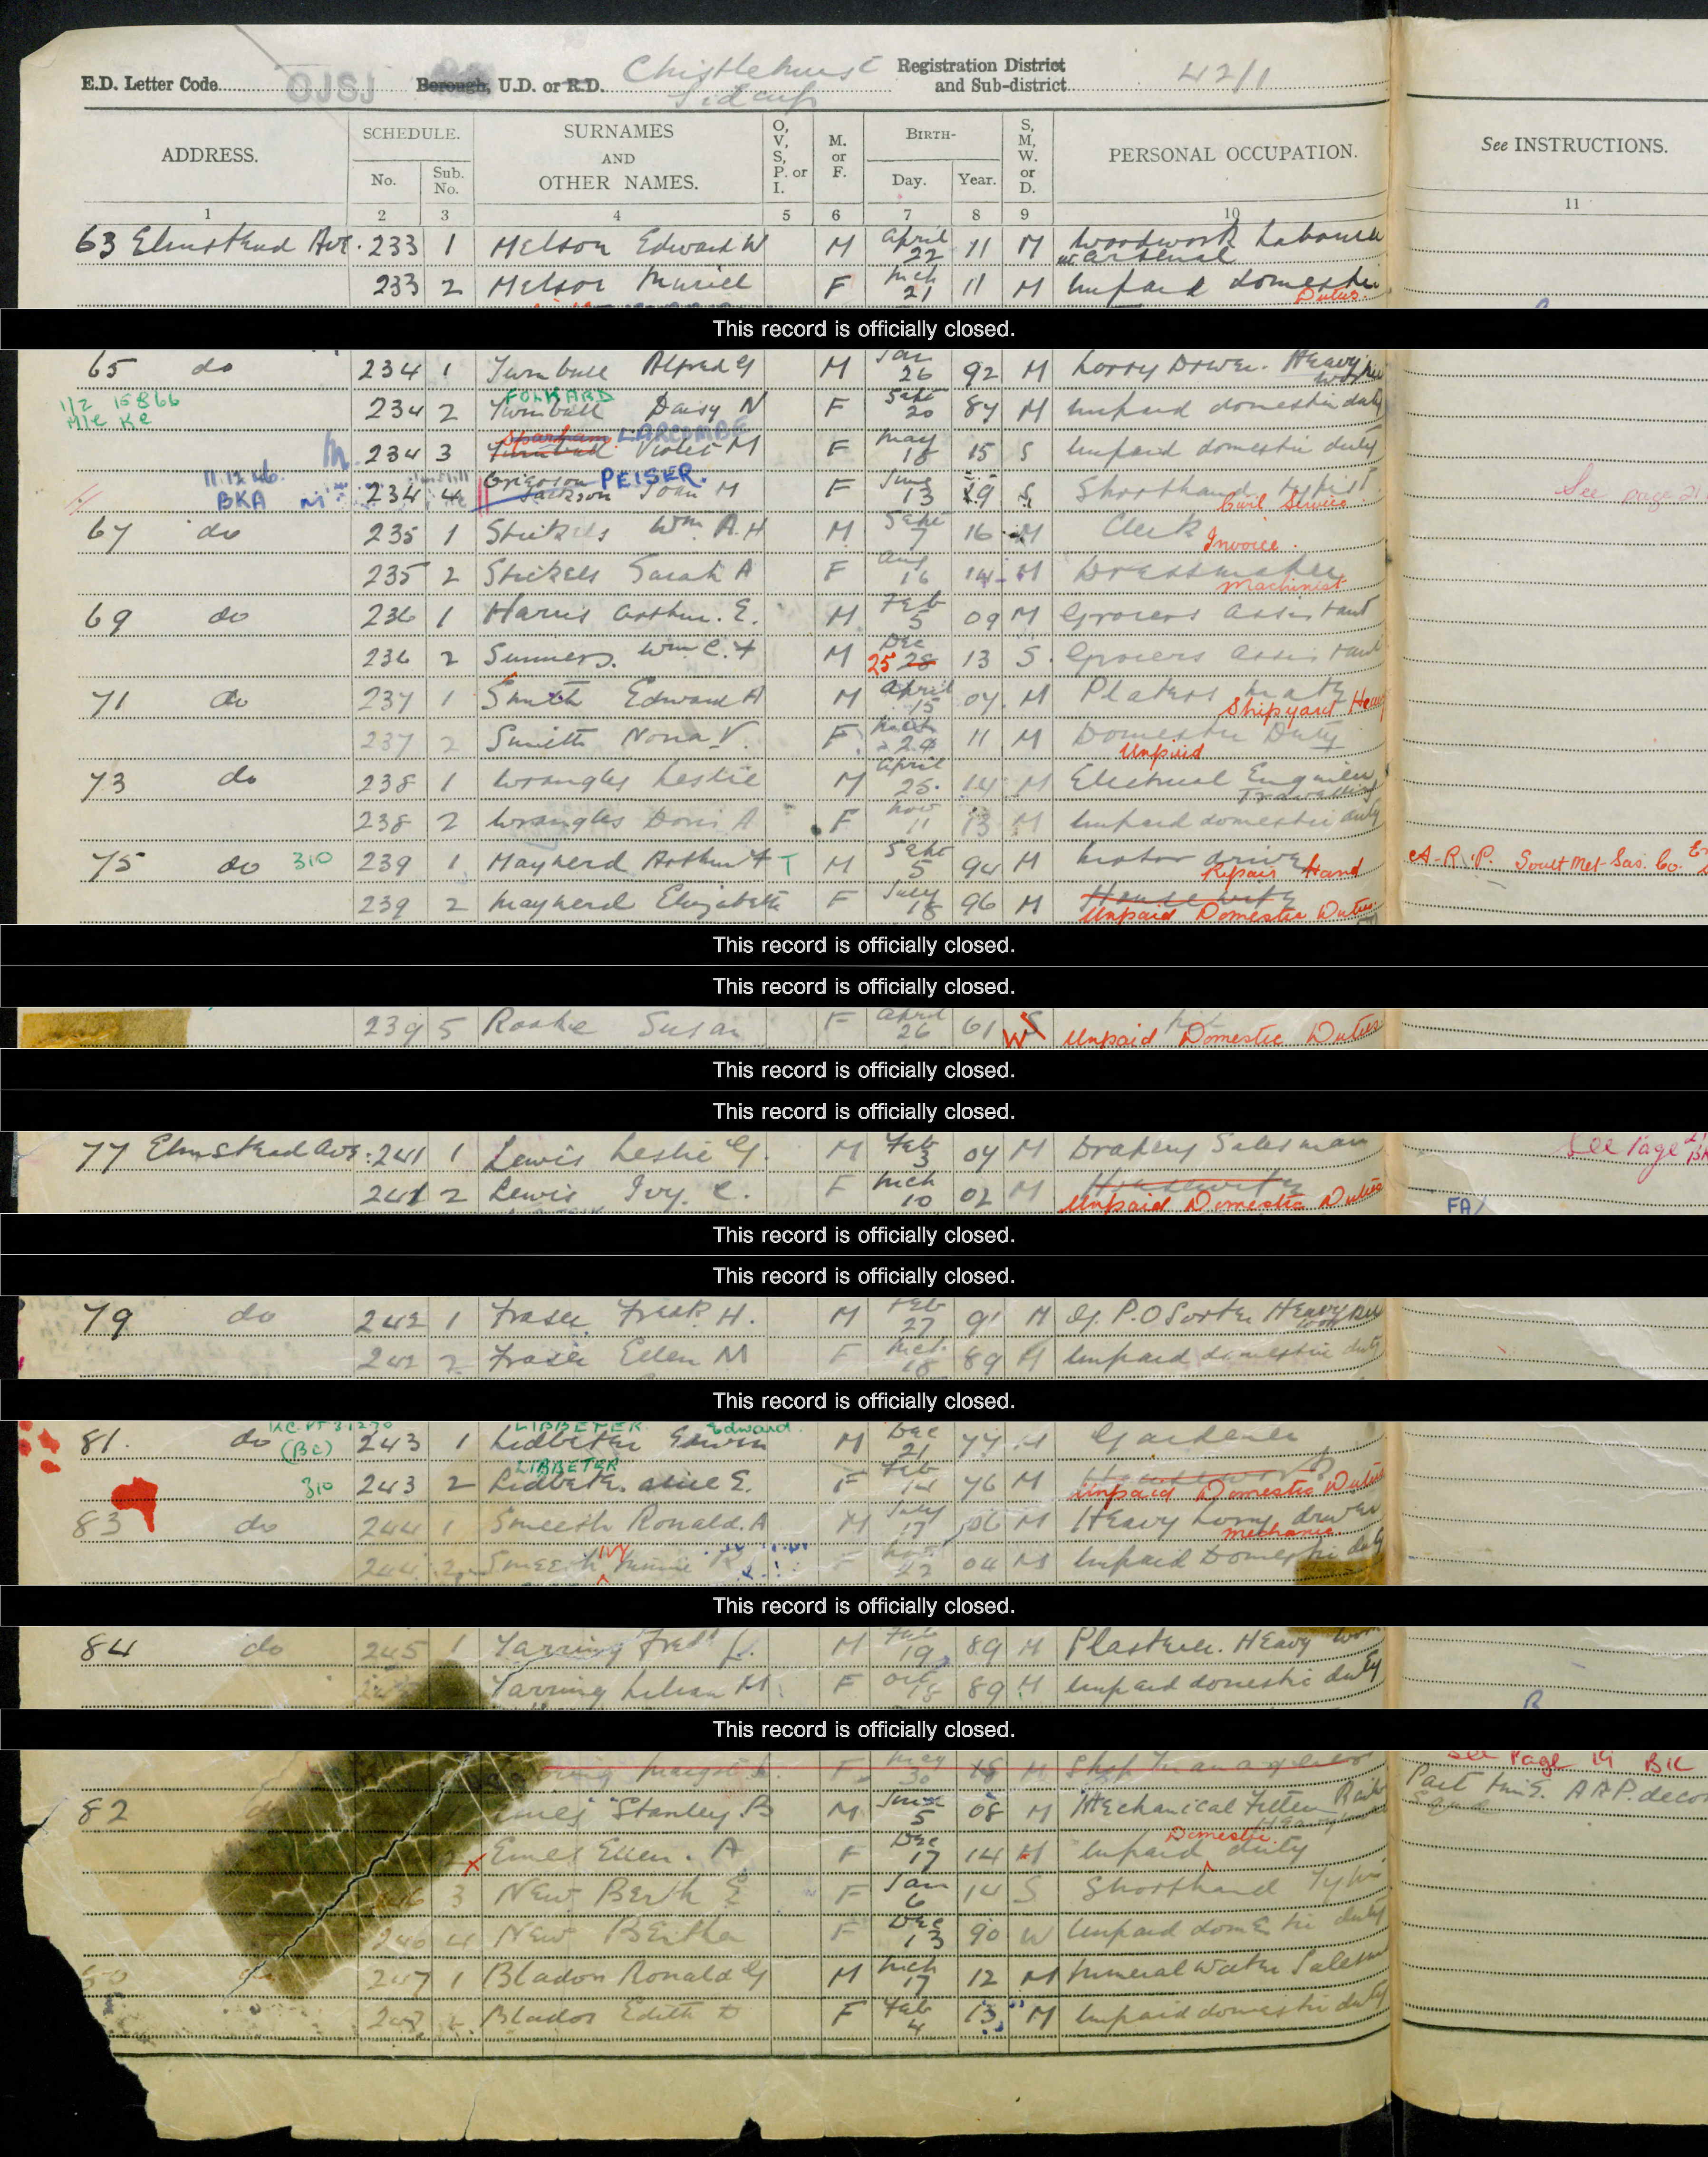 E.D. Letter Code OJSJ Borough, U.D. or R.D. Chislehurst Sidcup Registration District and Sub-district 42/1
ADDRESS. SCHEDULE. No. Sub. No. SURNAMES AND OTHER NAMES. O, V, S, P. or I. M. or F. BIRTH- Day. Year. S, M, W. or D. PERSONAL OCCUPATION. See INSTRUCTIONS.
1 2 3 4 5 6 7 8 9 10 11
63 Elmstead Ave. 233 1 Melson Edward W M April 22 11 M Woodwork Labourer at Arsenal
233 2 Melson Muriel F Mch 21 11 M Unpaid domestic Duties.
This record is officially closed.
65 do 234 1 Turnbull Alfred G M Jan 26 92 M Lorry Driver. Heavy Worker
1/2 15866 234 2 Turnbull FOLKARD Daisy N F Sept 20 87 M Unpaid domestic duty
234 3 Turnbull Sparham LARCOMBE Violet M F May 18 15 S Unpaid domestic duty
11.12.46. BKA 234 4 Jackson Grigoson PEISER. Joan M F June 13 19 S Shorthand typist Civil Service See page 21
67 do 235 1 Stickels Wm A.H M Sept 7 16 M Clerk Invoice.
235 2 Stickels Sarah A F Aug 16 14 M Dressmaker Machinist
69 do 236 1 Harris Arthur. E. M Feb 5 09 M Grocers Assistant
236 2 Summers. Wm C. F M Dec 25 28 13 S. Grocers Assistant
71 do 237 1 Smith Edward A M April 15 04 M Platers mate Shipyard Heavy
237 2 Smith Nona V. F 24 11 M Domestic Duty Unpaid
73 do 238 1 Wrangles Leslie M April 25. 14 M Electrical Engineer Travelling
238 2 Wrangles Doris A F Nov 11 13 M Unpaid domestic duty
75 do 310 239 1 Mayherd Arthur F T M Sept 5 94 M Motor driver Repair Hand A.R.P. South Met. Gas. Co.
239 2 Mayherd Elizabeth F July 18 96 M Housewife Unpaid Domestic Duties.
This record is officially closed.
This record is officially closed.
239 5 Rooke Susan F April 26 61 S W Unpaid Domestic Duties
This record is officially closed.
This record is officially closed.
77 Elmstead Ave. 241 1 Lewis Leslie G. M Feb 3 04 M Drapery Salesman See Page
241 2 Lewis Ivy. C. F Mch 10 02 M Housewife Unpaid Domestic Duties FA/
This record is officially closed.
This record is officially closed.
79 do 242 1 Fraser Fredk H. M Feb 27 91 M G.P.O Sorter Heavy worker
242 2 Fraser Ellen M F Mch 18 89 M Unpaid domestic duty
This record is officially closed.
81. do (BC) 243 1 Lidbetter LIBBETER Edwin Edward M Dec 21 77 M Gardener
310 243 2 Lidbetter LIBBETER Alice E. F Feb 14 76 M Housework Unpaid Domestic Duties
83 do 244 1 Smeeth Ronald. A M July 17 06 M Heavy lorry driver mechanic
244 2 Smeeth IVY Minnie R F Nov 22 04 M Unpaid Domestic duty
This record is officially closed.
84 do 245 1 Yarring Fredk L. M Feb 19 89 M Plasterer. Heavy Work
Yarring Lilian M F Oct 18 89 M Unpaid domestic duty
This record is officially closed.
F May 30 18 M Shop Manageress See Page 19 BK
82 Emes Stanley B M June 5 08 M Mechanical Fitter Heavy Part time. A.R.P.
Emes Ellen. A F Dec 17 14 M Unpaid Domestic duty
246 3 New Berth E F Jan 6 14 S Shorthand Typist
246 4 New Bertha F Dec 13 90 W Unpaid domestic duty
247 1 Bladon Ronald G M Mch 17 12 M Mineral Water Salesman
247 2 Bladon Edith D F Feb 4 13 M Unpaid domestic duty